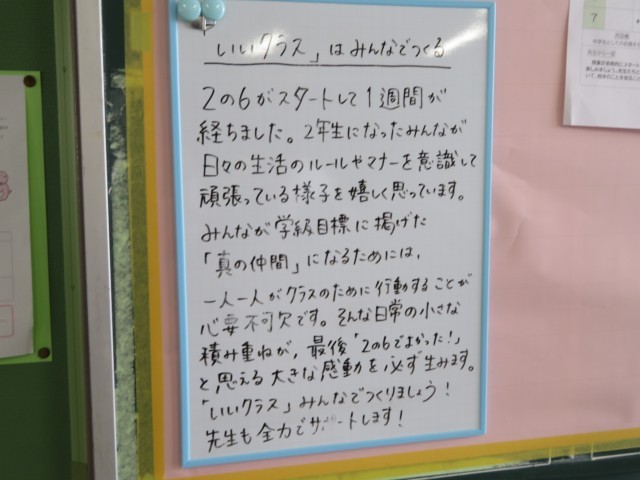 「いいクラス」はみんなでつくる
2の6がスタートして1週間が
経ちました。2年生になったみんなが
日々の生活のルールやマナーを意識して
頑張っている様子を嬉しく思っています。
みんなが学級目標に掲げた
「真の仲間」になるためには、
一人一人がクラスのために行動することが
必要不可欠です。そんな日常の小さな
積み重ねが、最後「2の6でよかった!」
と思える大きな感動を必ず生みます。
「いいクラス」みんなでつくりましょう!
先生も全力でサポートします!
7